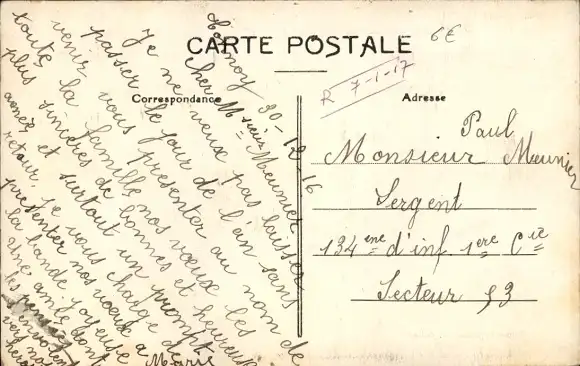 CARTE POSTALE
6€
R 7-1-17
Correspondance
Adresse
30-12-16
Cher Msieur Meunier
Je ne veux pas laisser
passer le jour de l'an sans
venir vous présenter au nom de
toute la famille nos vœux les
plus sincères de bonnes et heureuse
année et surtout un prompt
retour. Je vous charge de
présenter nos vœux à
la bande joyeuse
une amis dont
les pensées
s'envolent
vers nos
héros
Marie
Paul
Monsieur Meunier
Sergent
134eme d'inf. 1ere Cie
Secteur 93